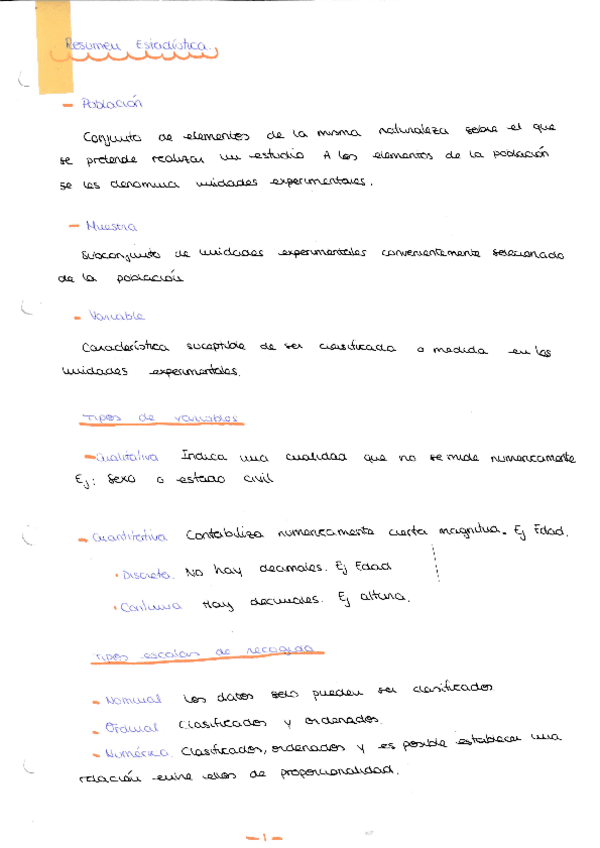 Resumen Estadística.
- Población
Conjunto de elementos de la misma naturaleza sobre el que
se pretende realizar un estudio A los elementos de la población
se les denomina unidades experimentales.
- Muestra
Subconjunto de unidades experimentales convenientemente seleccionado
de la población
- Variable
Característica suceptible de ser clasificada o medida en las
unidades experimentales.
Tipos de variables
- Cualitativa Indica una cualidad que no se mide numericamente
Ej: Sexo o estado civil
- Cuantitativa Contabiliza numericamente cierta magnitud. Ej Edad.
· Discreta. No hay decimales. Ej Edad
· Continua Hay decimales. Ej altura.
Tipos escalas de recogida
- Nominal los datos solo pueden ser clasificados
- Ordinal Clasificados y ordenados.
- Numérica. Clasificados, ordenados y es posible establecer una
relación entre ellos de proporcionalidad.
- 1 -